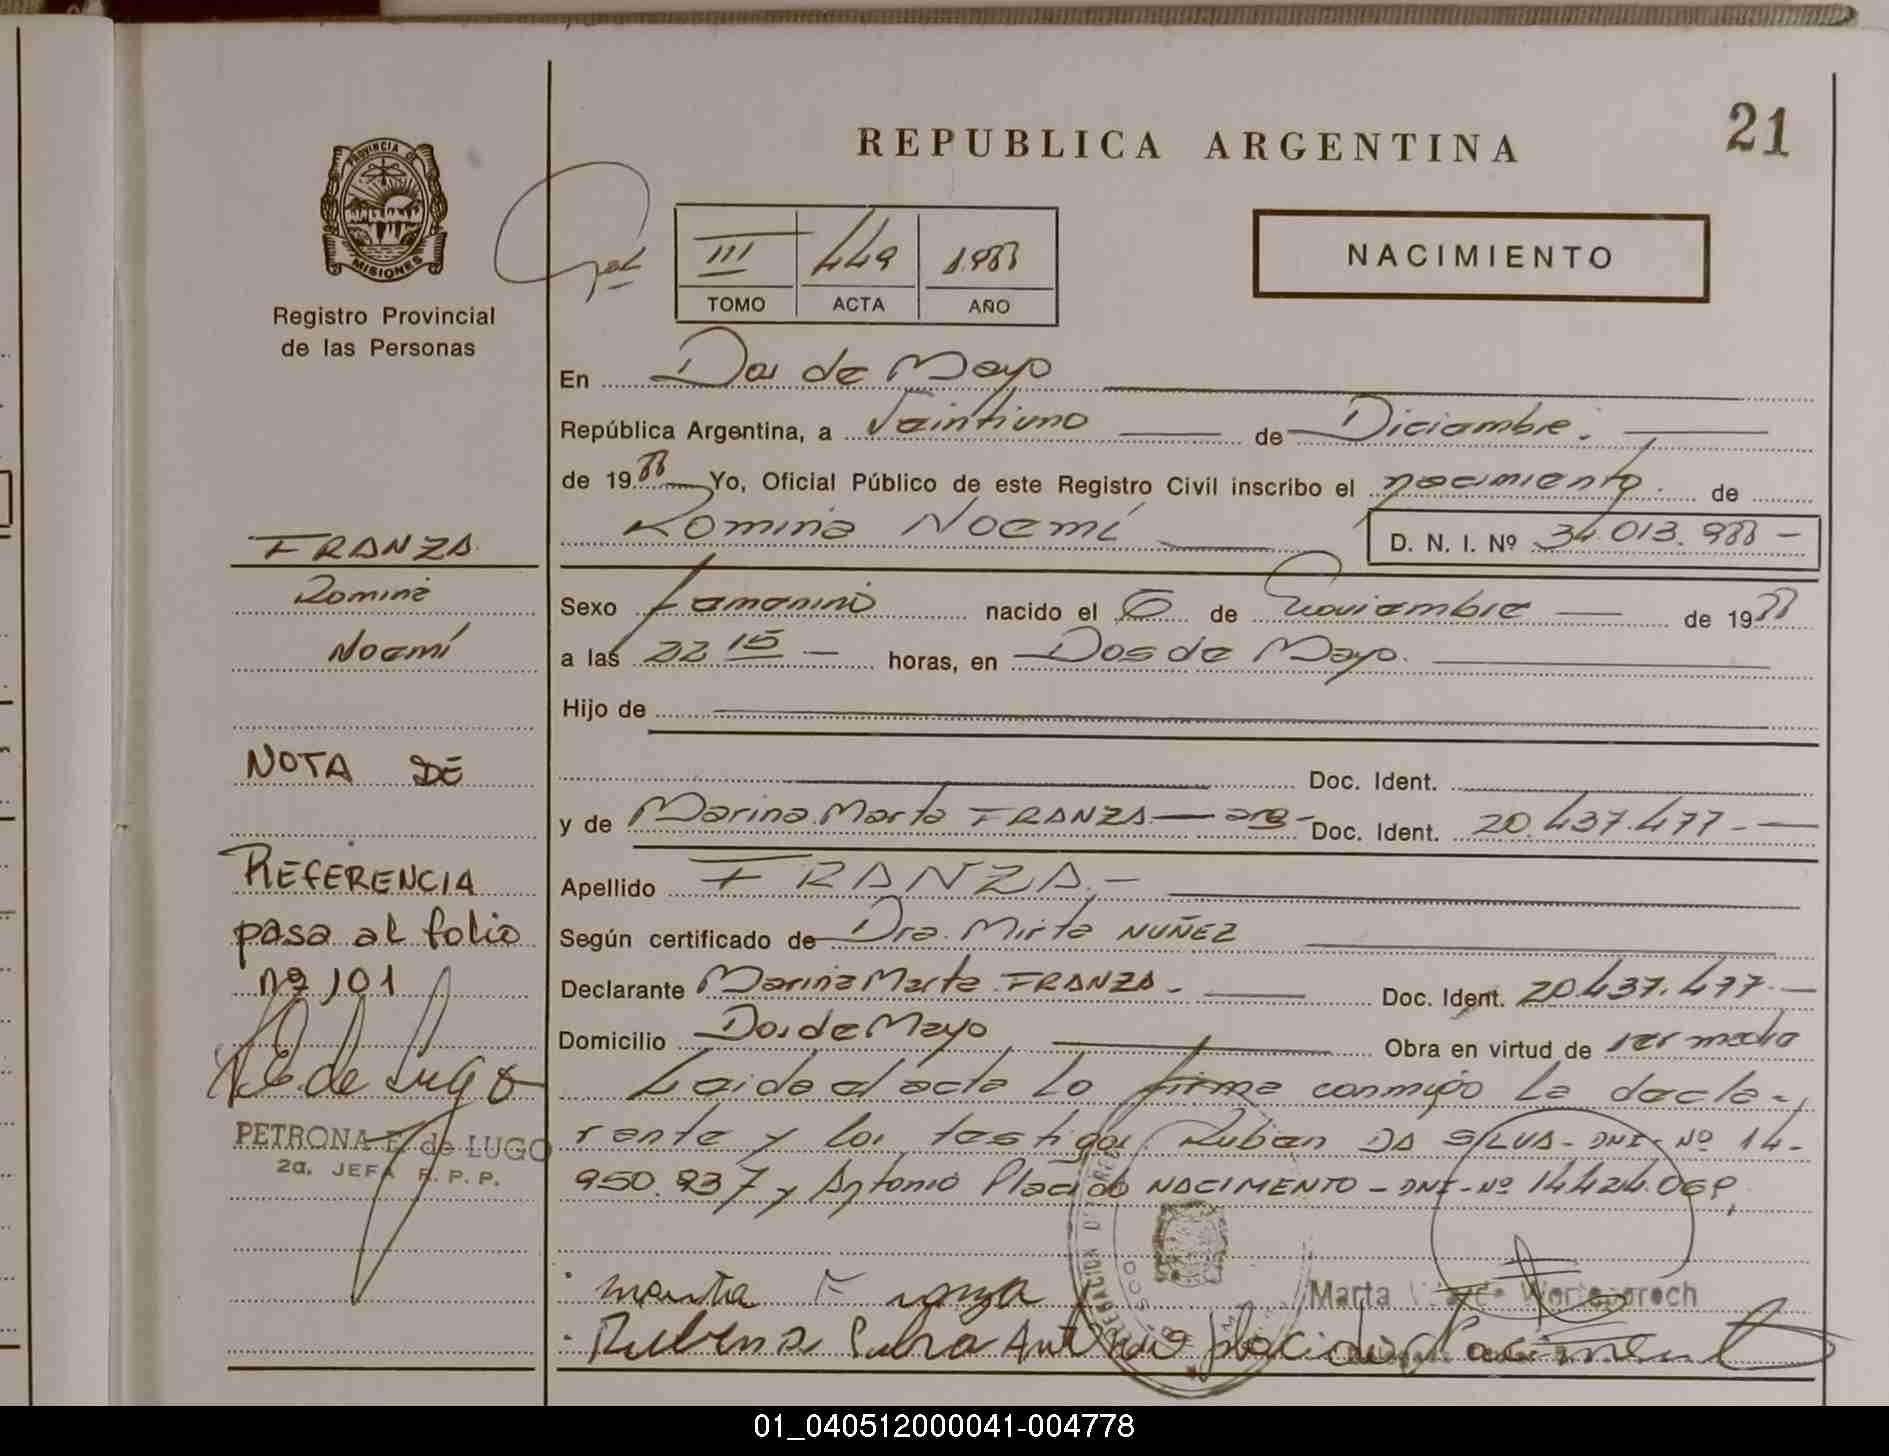 REPUBLICA ARGENTINA
21
PROVINCIA DE
MISIONES
Registro Provincial
de las Personas
III 449 1988
TOMO ACTA AÑO
NACIMIENTO
En Dos de Mayo
República Argentina, a Veintiuno de Diciembre.
de 1988 Yo, Oficial Público de este Registro Civil inscribo el nacimiento. de
Romina Noemí D. N. I. Nº 34.013.988 —
Sexo Femenino nacido el 6 de Noviembre de 1988
a las 22 15 — horas, en Dos de Mayo.
Hijo de
Doc. Ident.
y de Marina Marta FRANZA — arg- Doc. Ident. 20.437.477 -
Apellido FRANZA.-
Según certificado de Dra. Mirta NUÑEZ
Declarante Marina Marta FRANZA - Doc. Ident. 20.437.477 -
Domicilio Dos de Mayo Obra en virtud de ser madre
Leida el acta la firma conmigo la decla-
rante y los testigos Ruben DA SILVA - DNI - Nº 14-
950.937 y Antonio Placido NACIMENTO - DNI - Nº 14.424.069
marta Franza
Marta
Ruben Da Silva Antonio placido Nacimento
FRANZA
Romina
Noemí
NOTA DE
REFERENCIA
pasa al folio
nº 101
E. de Lugo
PETRONA E. de LUGO
2a. JEFA R. P. P.
01_040512000041-004778